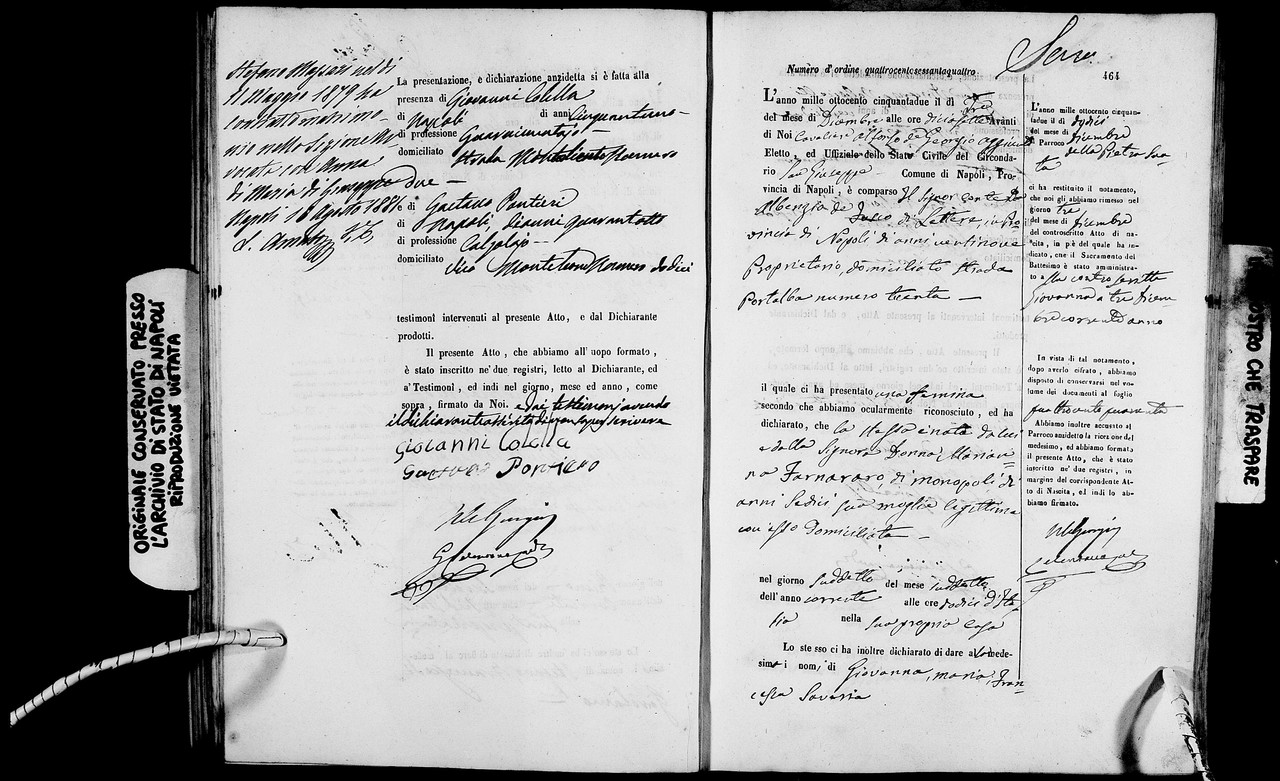 Stefano Massari nel dì
11 Maggio 1879 ha
contratto matrimo-
nio nella Sezione Av-
vocata con Anna
di Maria di Giuseppe
Napoli 16 Agosto 1881
La presentazione, e dichiarazione anzidetta si è fatta alla
presenza di Giovanni Colella
di Napoli di anni Cinquantuno
di professione Guarnimentajo
domiciliato Strada Monteoliveto Numero
due
e di Gaetano Pontieri
di Napoli, di anni quarantotto
di professione Calzolajo
domiciliato Vico Monteleone Numero dodici
testimoni intervenuti al presente Atto, e dal Dichiarante
prodotti.
Il presente Atto, che abbiamo all'uopo formato,
è stato inscritto ne' due registri, letto al Dichiarante, ed
a' Testimoni, ed indi nel giorno, mese ed anno, come
sopra, firmato da Noi. e dai testimonj avendo
il dichiarante asserito di non saper scrivere
Giovanni Colella
Gaetano Pontiero
De Giorgio
Numero d'ordine quattrocentosessantaquattro
464
L'anno mille ottocento cinquantadue il dì Tre
del mese di Dicembre alle ore diciasette Avanti
di Noi Cavaliere Alfonso de Giorgio aggiunto
Eletto, ed Uffiziale dello Stato Civile del Circonda-
rio San Giuseppe Comune di Napoli, Pro-
vincia di Napoli, è comparso Il Signor Conte Don
di Lettere, in Pro
vincia di Napoli di anni ventinove
Proprietario, domiciliato Strada
Portalba numero trenta
il quale ci ha presentato una femina
secondo che abbiamo ocularmente riconosciuto, ed ha
dichiarato, che la stessa è nata da lui
e dalla Signora Donna Marian
na Farnararo di Monopoli di
anni Sedici sua moglie legittima
con esso domiciliata
nel giorno suddetto del mese suddetto
dell'anno corrente alle ore dodici d'Ita
lia nella sua propria casa
Lo stesso ci ha inoltre dichiarato di dare alla mede-
sima i nomi di Giovanna, Maria, Fran
cesca Saveria
L'anno mille ottocento cinquan-
tadue il dì dodici
del mese di Dicembre
il Parroco della Pietra San
ta
ci ha restituito il notamento,
che noi gli abbiamo rimesso nel
giorno tre
del mese di Dicembre
del controscritto Atto di na-
scita, in piè del quale ha in-
dicato, che il Sacramento del
Battesimo è stato amministra-
to alla controscritta
Giovanna a tre Dicem
bre corrente anno
In vista di tal notamento,
dopo averlo cifrato, abbiamo
disposto di conservarsi nel vo-
lume dei documenti al foglio
quattrocento
Abbiamo inoltre accusato al
Parroco anzidetto la ricezione del
medesimo, ed abbiamo formato
il presente Atto, che è stato
inscritto ne' due registri, in
margine del corrispondente At-
to di Nascita, ed indi lo ab-
biamo firmato.
De Giorgio
ORIGINALE CONSERVATO PRESSO
L'ARCHIVIO DI STATO DI NAPOLI
RIPRODUZIONE VIETATA
OSTRO CHE TRASPARE